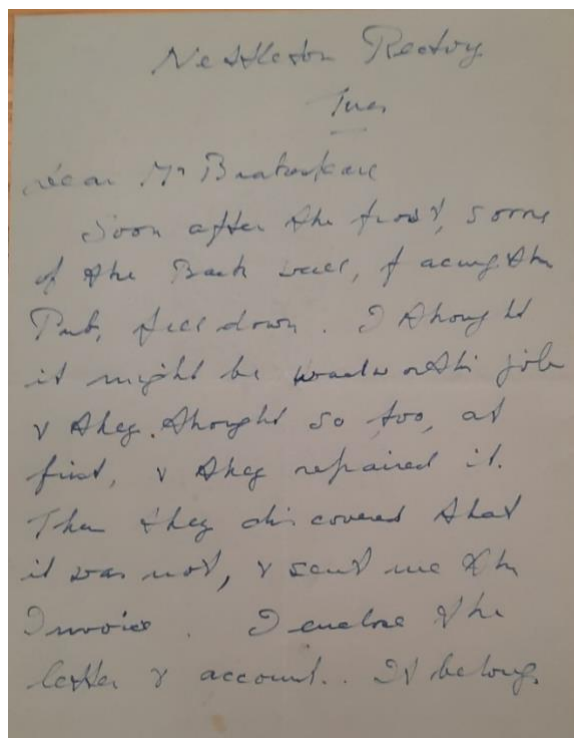 Nettleton Rectory
Tues
Dear Mr
Soon after the frost, some
of the Back wall, facing the
Pub, fell down. I thought
it might be job
& they thought so too, at
first, & they repaired it.
Then they discovered that
it was not, & sent me the
Invoice. I enclose the
letter & account.. It belongs